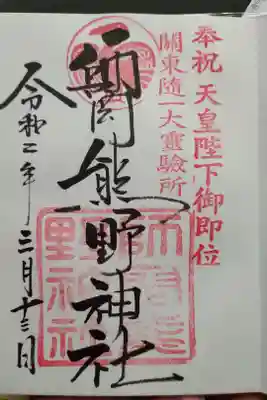 奉祝 天皇陛下御即位
關東隨一大靈驗所
師岡熊野神社
令和二年三月十三日